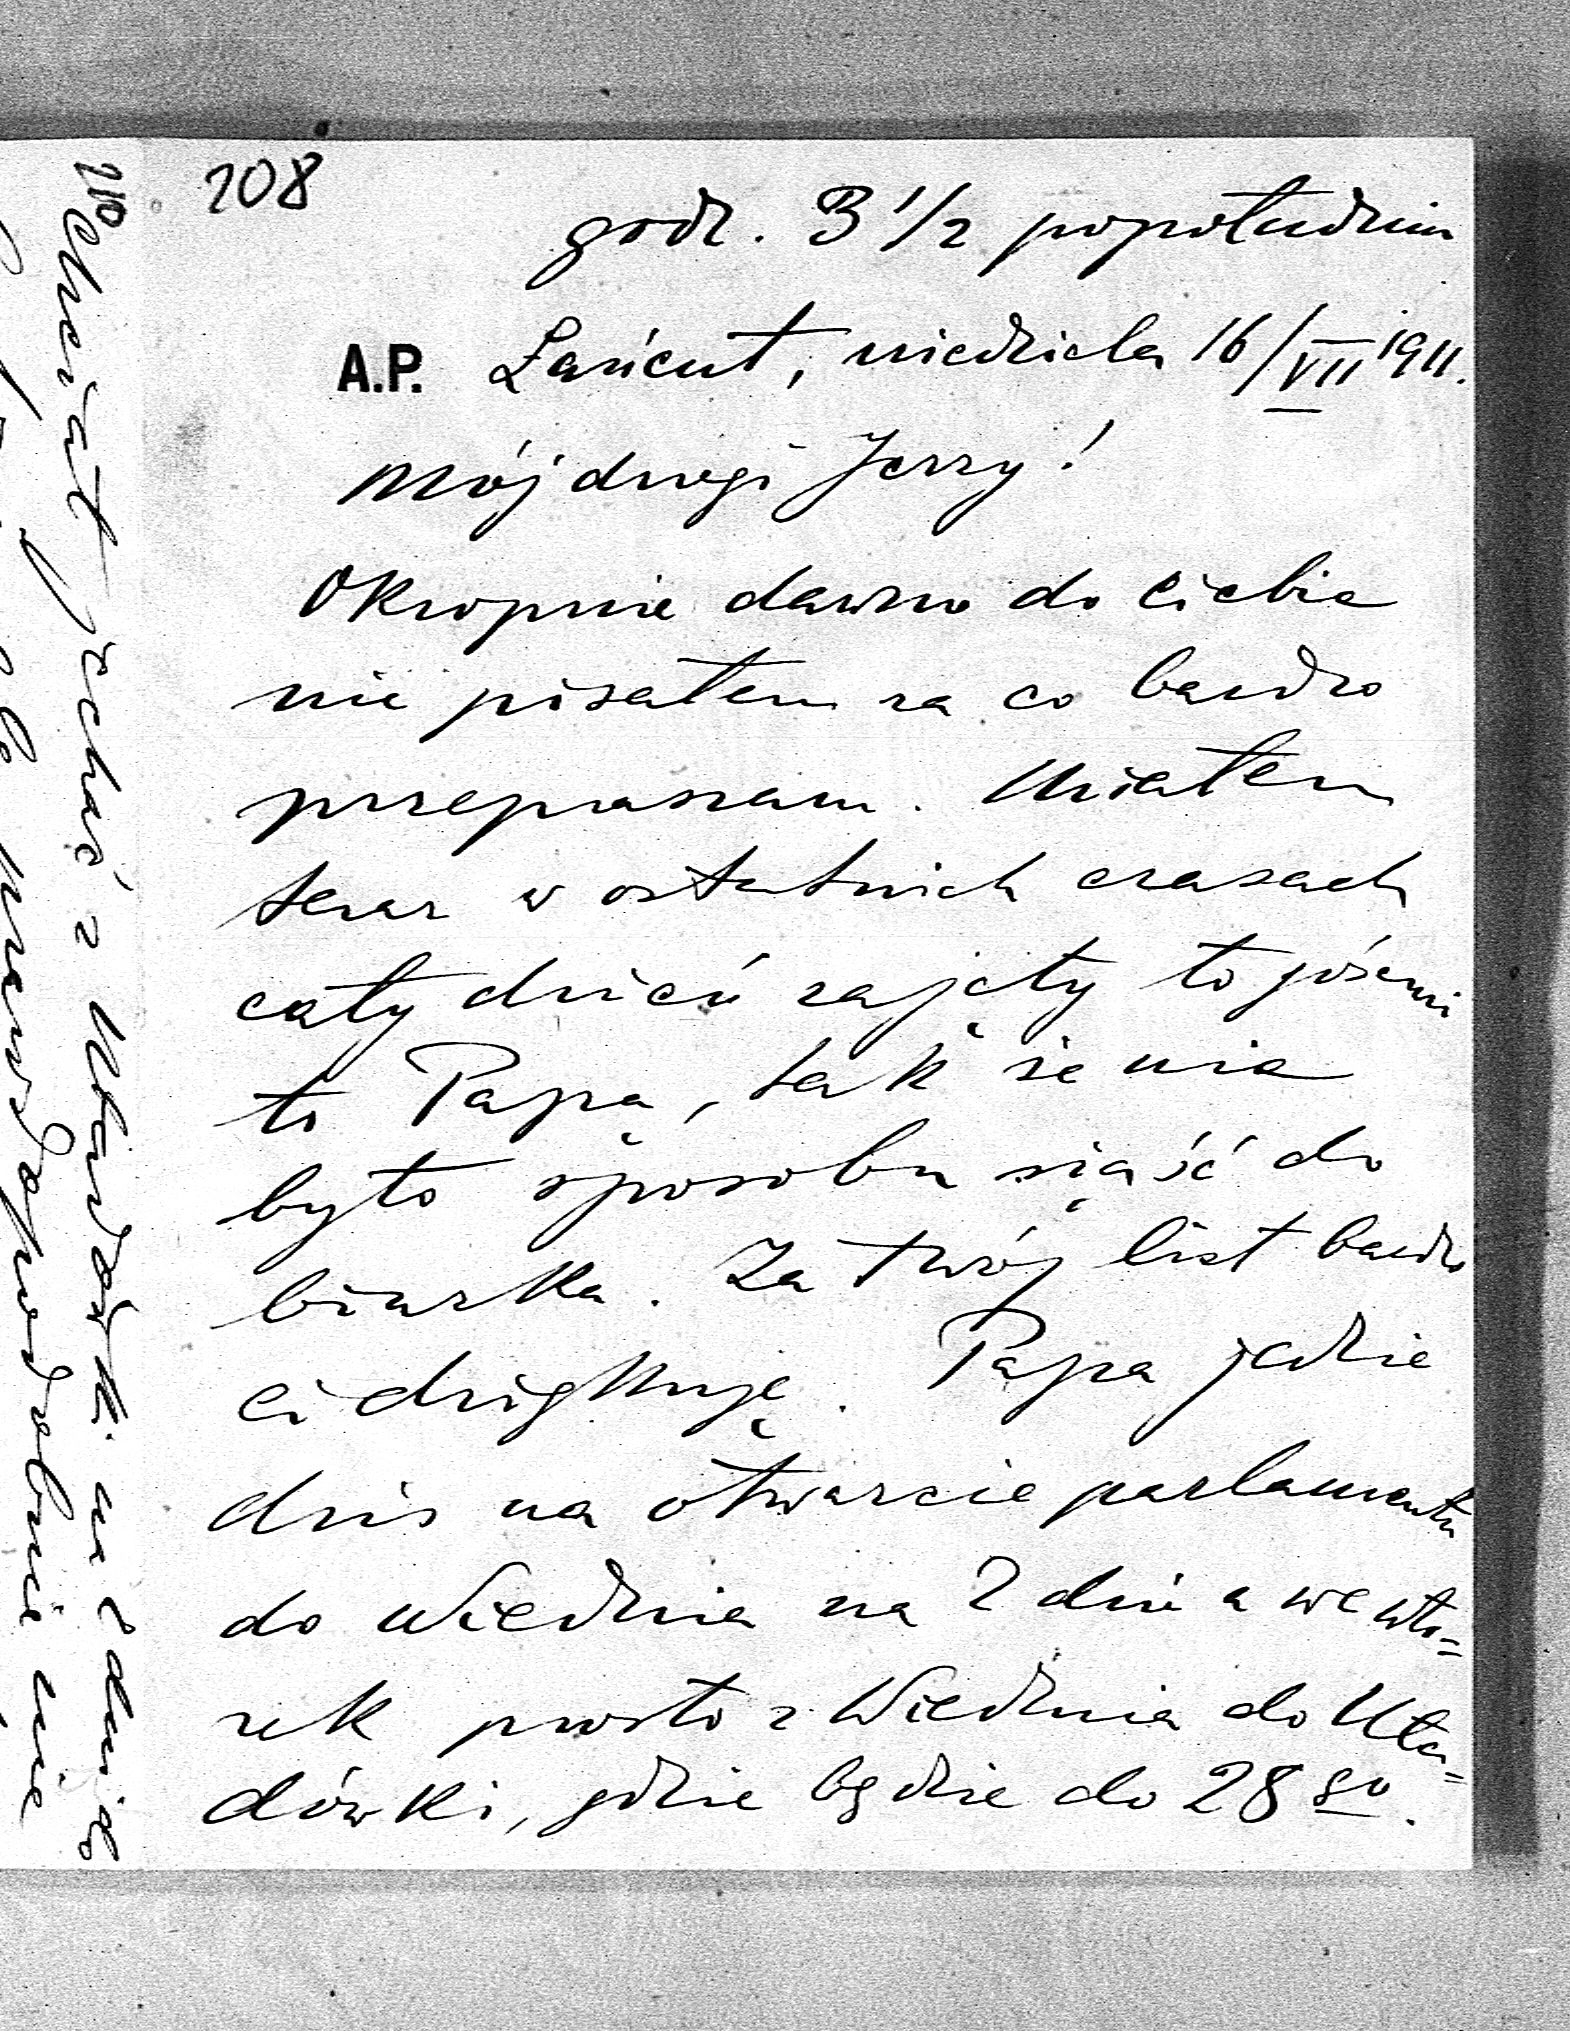 208
godz. 3 1/2 popołudniu
A.P. Łańcut, niedziela 16/VII 1911.
Mój drogi Jerzy!
Okropnie dawno do ciebie
nie pisałem za co bardzo
przepraszam. Miałem
teraz w ostatnich czasach
cały dzień zajęty to gośćmi
to Papą, tak że nie
było sposobu siąść do
biurka. Za twój list bardzo
ci dziękuję. Papa jedzie
dziś na otwarcie parlamentu
do Wiednia na 2 dni a we wto=
rek prosto z Wiednia do Uła=
dówki, gdzie będzie do 28 go.
210
jechać z Uładówki a
prawdopodobnie nie